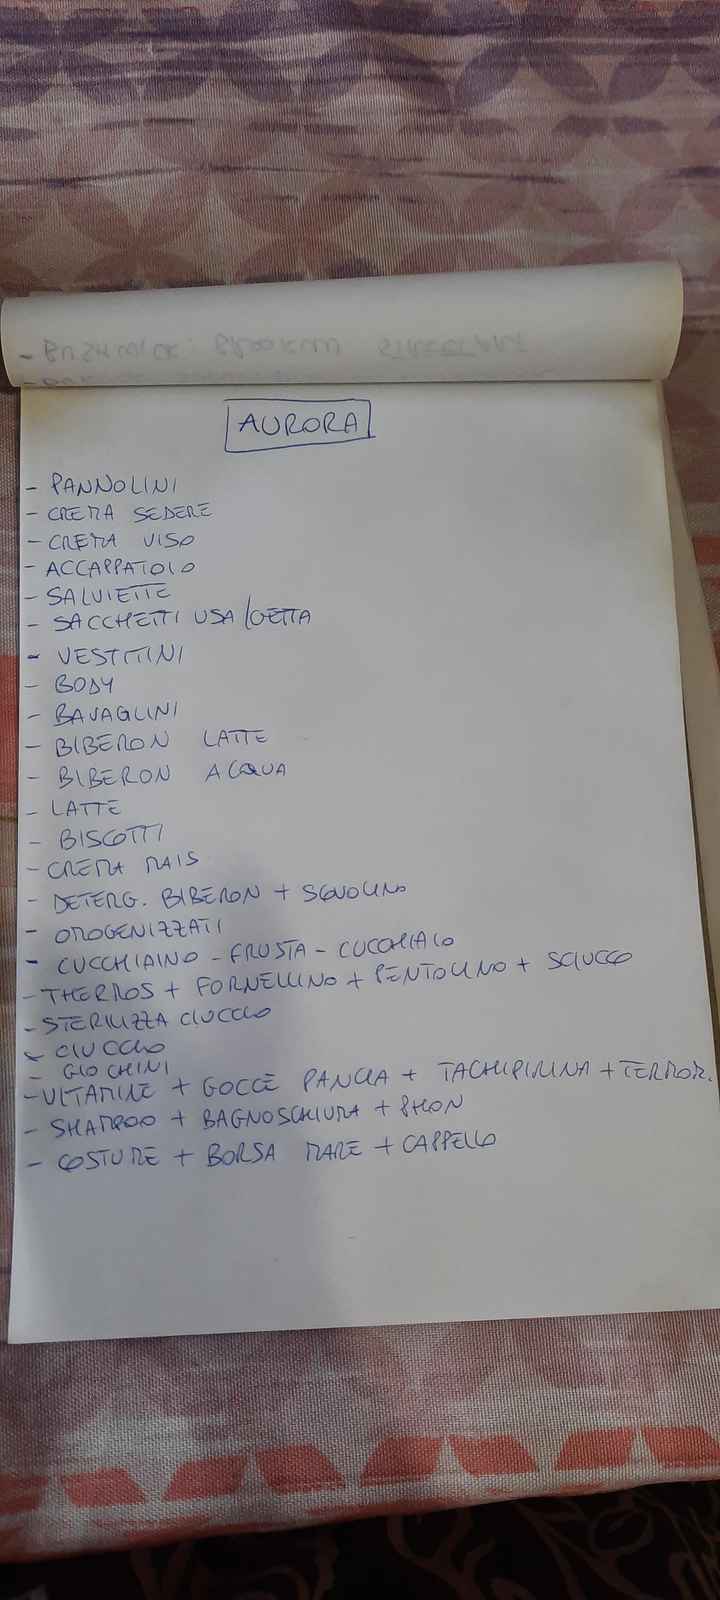 AURORA
- PANNOLINI
- CREMA SEDERE
- CREMA VISO
- ACCAPPATOIO
- SALVIETTE
- SACCHETTI USA/GETTA
- VESTITINI
- BODY
- BAVAGLINI
- BIBERON LATTE
- BIBERON ACQUA
- LATTE
- BISCOTTI
- CREMA MAIS
- DETERG. BIBERON + SCOVOLINO
- OMOGENIZZATI
- CUCCHIAINO - FRUSTA - CUCCHIAIO
- THERMOS + FORNELLINO + PENTOLINO +
- STERILIZZA CIUCCIO
- CIUCCIO
- GIOCHINI
- VITAMINE + GOCCE PANCIA + TACHIPIRINA + TERMOM.
- SHAMPOO + BAGNOSCHIUMA + PHON
- COSTUME + BORSA MARE + CAPPELLO